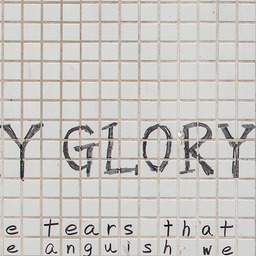 Y GLORY
e tears that
e anguish we